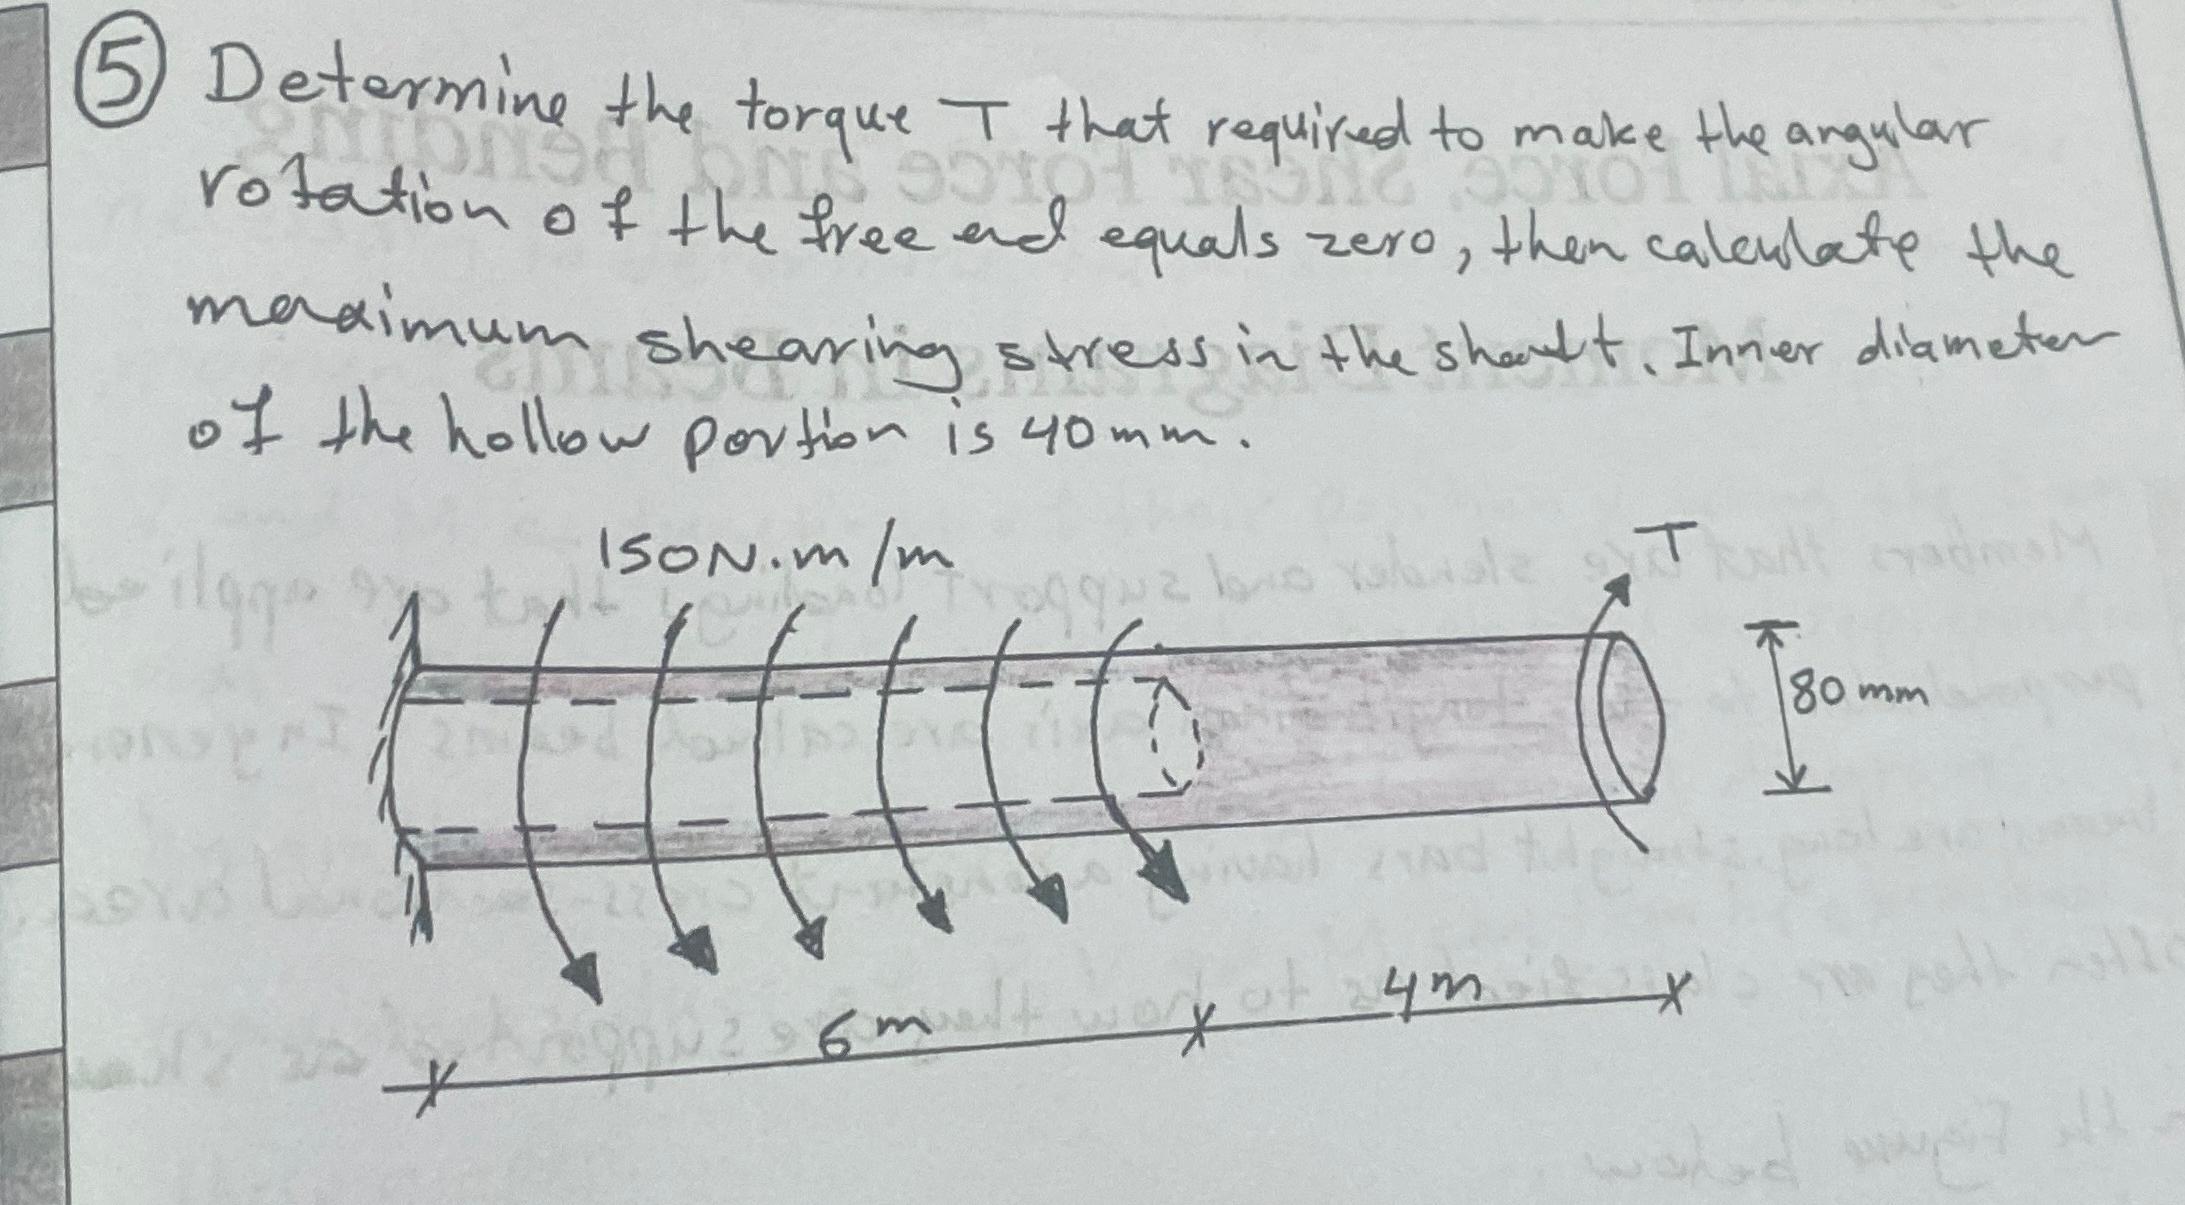 5 Determine the torque T that required to make the angular
rotation of the free end equals zero, then calculate the
maximum shearing stress in the shaft. Inner diameter
of the hollow portion is 40mm.
150N.m/m
T
80mm
6m
4m